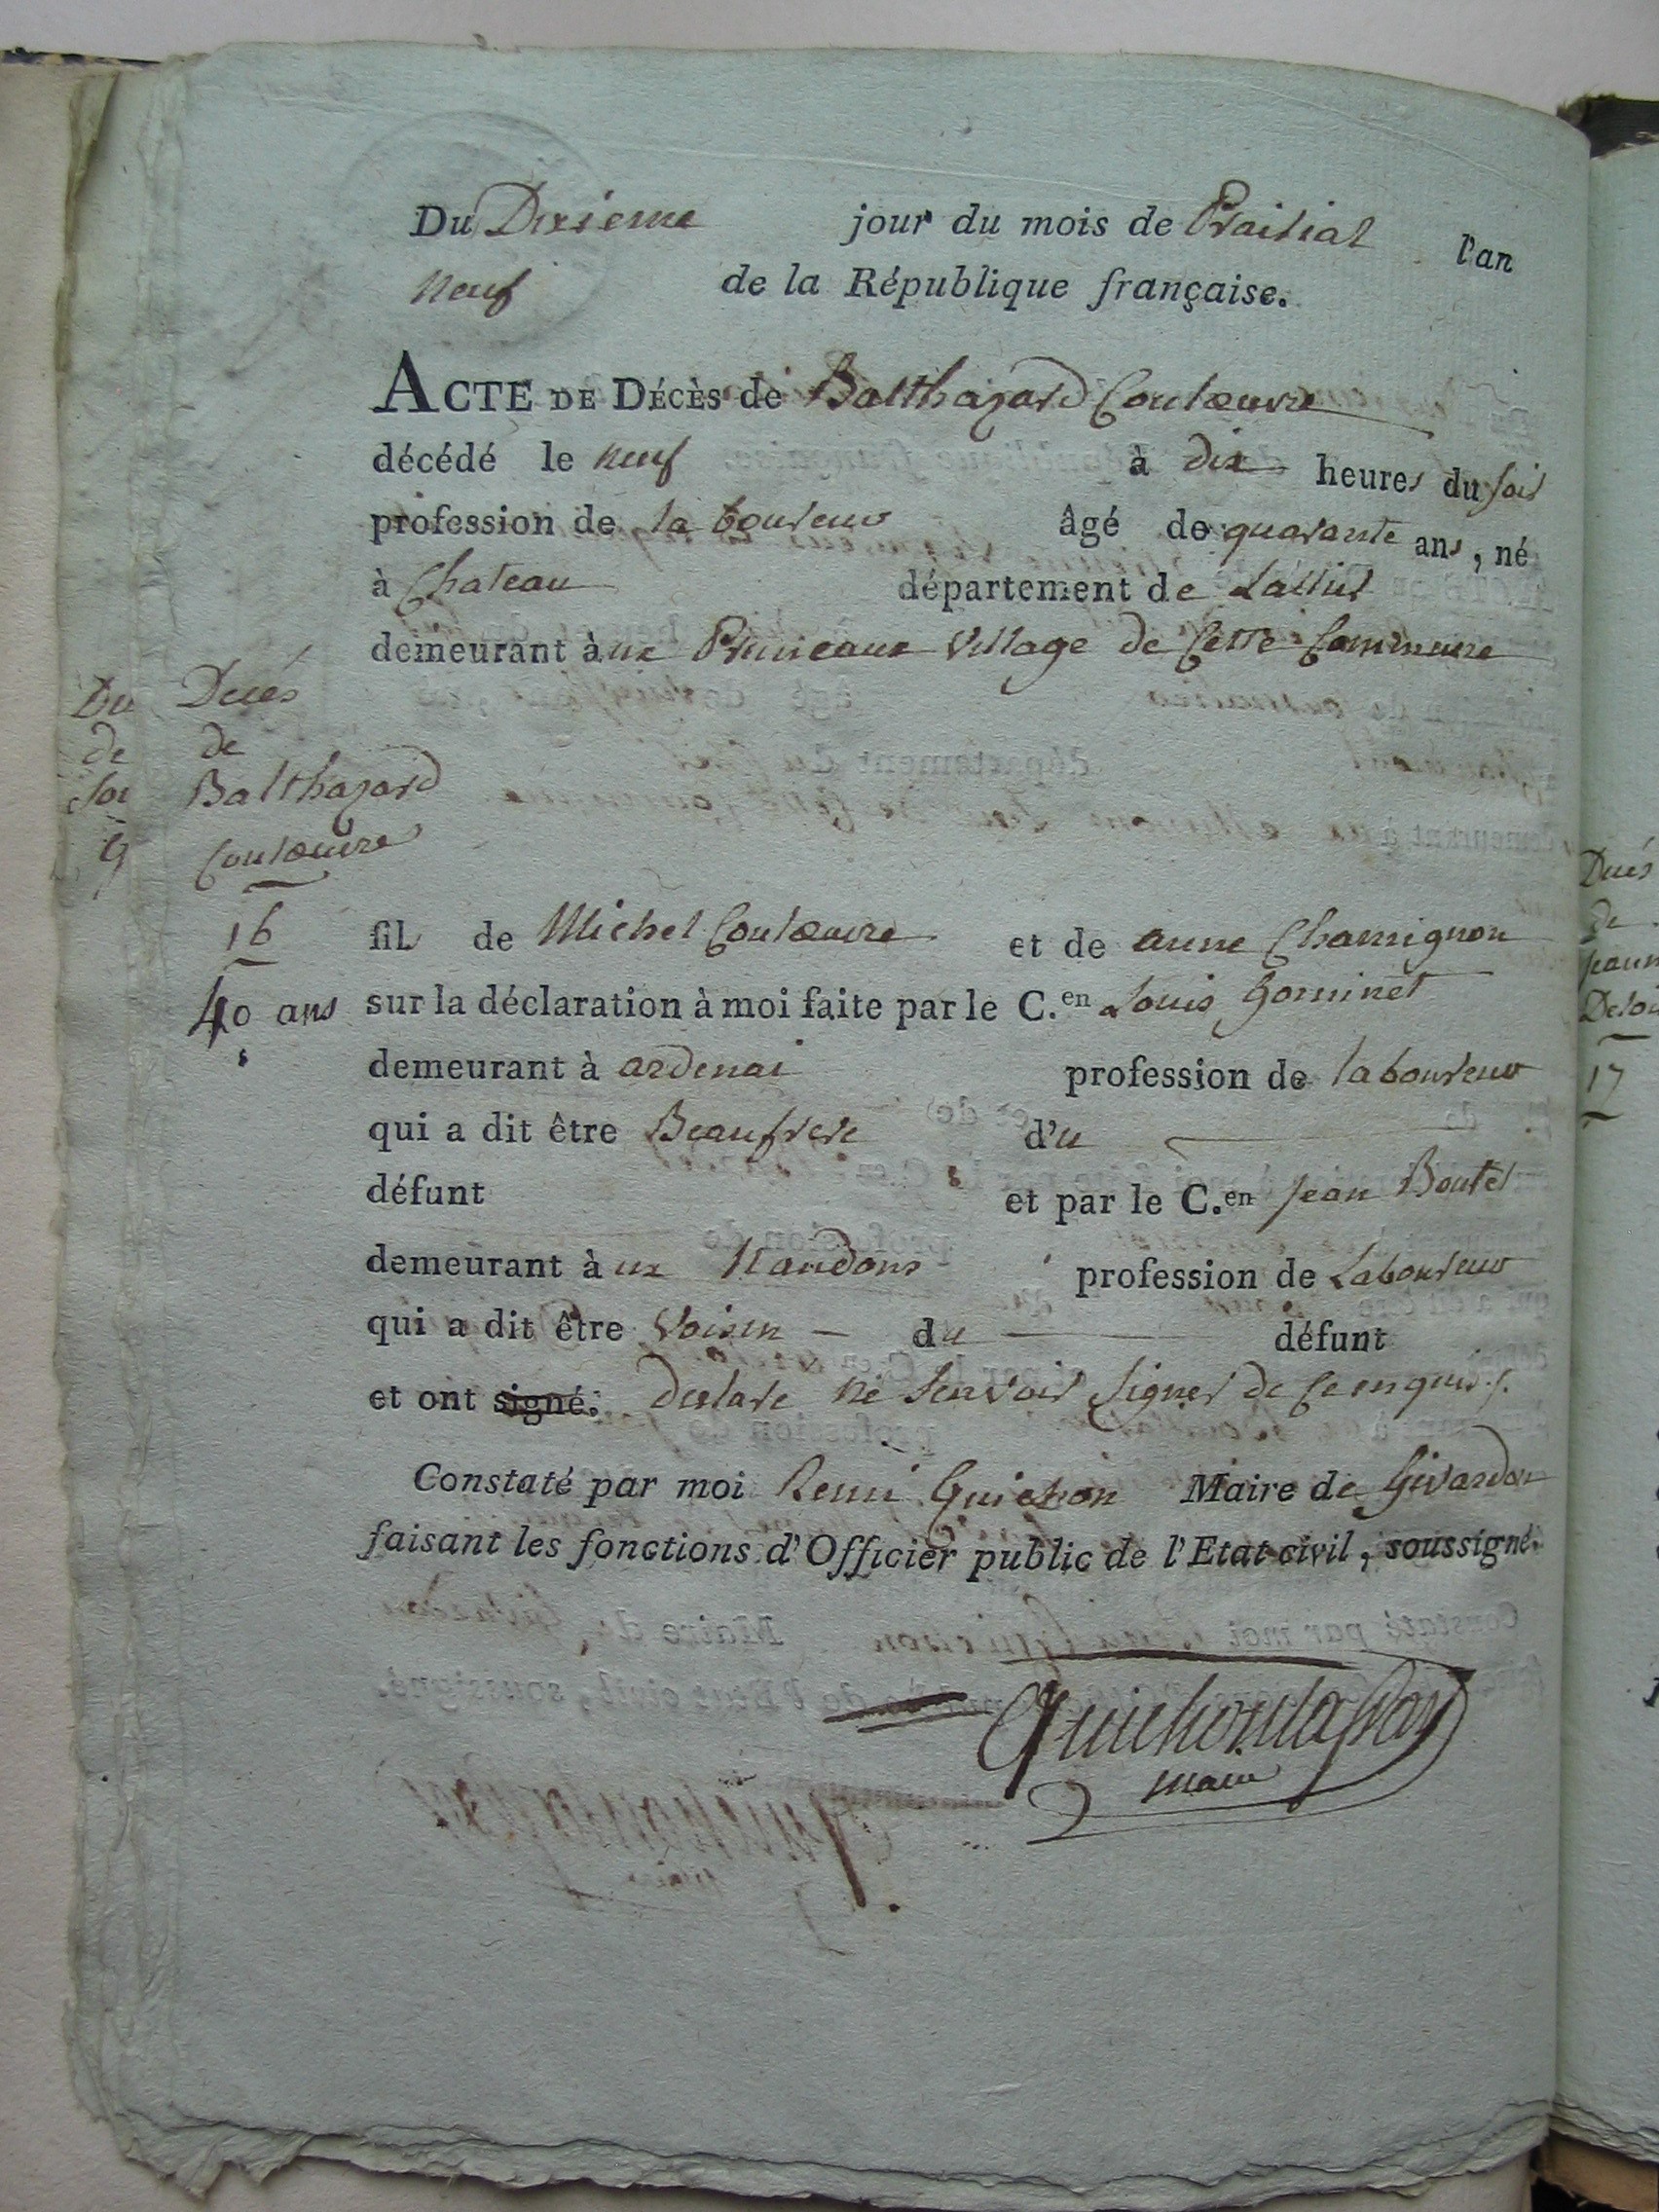 Du Dixieme jour du mois de Prairial l'an
neuf de la République française.
ACTE DE DÉCÈS de Balthazard Coulœuvre
décédé le neuf à dix heures du soir
profession de laboureur âgé de quarante ans, né
à Chateau département de Lallier
demeurant à ux Pruneaux village de Cette Commune
Decés
de
Balthazard
Coulœuvre
16
40 ans
fils de Michel Coulœuvre et de anne Chamignon
sur la déclaration à moi faite par le C.en Louis Gominet
demeurant à ardenai profession de laboureur
qui a dit être Beaufrere d'u
défunt et par le C.en jean Boutet
demeurant à ux Naudons profession de Laboureur
qui a dit être Voisin du défunt
et ont signé. declare ne scavoir signer de ce enquis.
Constaté par moi Remi Guichon Maire de Givardon
faisant les fonctions d'Officier public de l'Etat civil, soussigné.
maire
Du
de
9
Decés
de
17